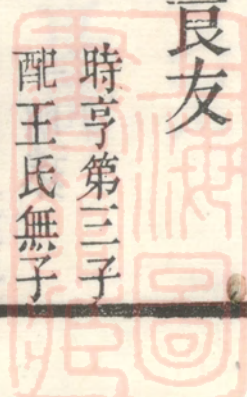 良友
時亨第三子
配王氏無子